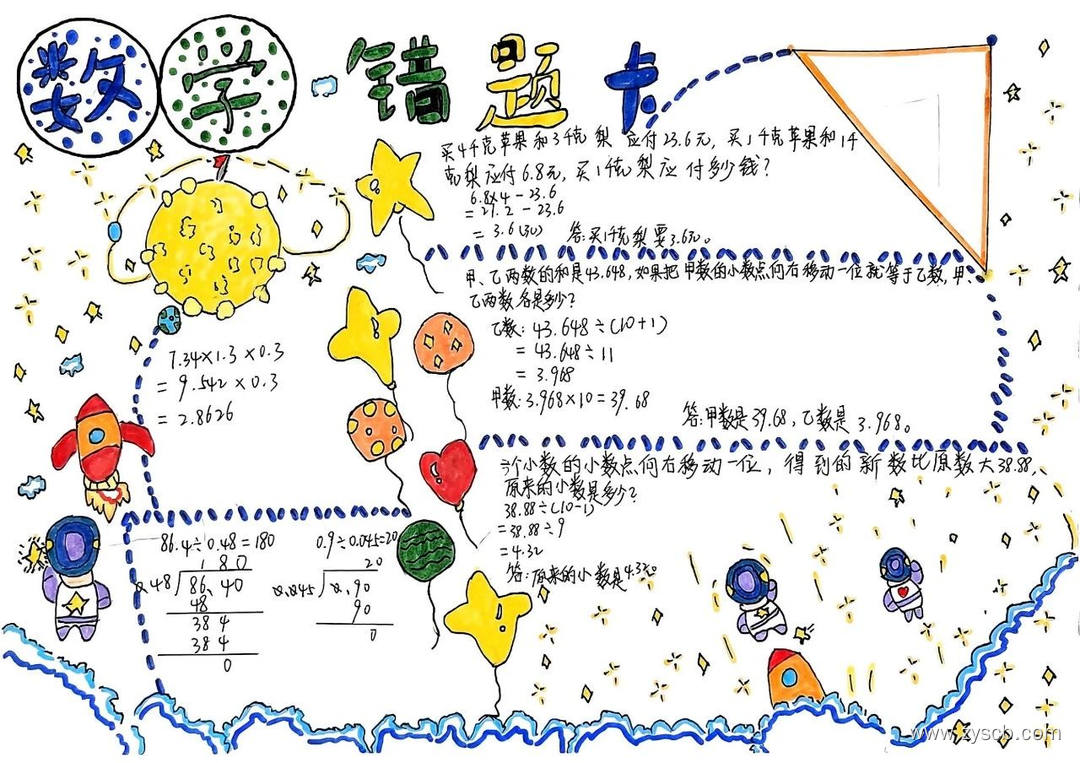 数学错题卡
买4千克苹果和3千克梨应付23.6元，买1千克苹果和1千
克梨应付6.8元，买1千克梨应付多少钱？
6.8×4-23.6
=27.2-23.6
=3.6(元) 答:买1千克梨要3.6元。
甲、乙两数的和是43.648,如果把甲数的小数点向右移动一位就等于乙数,甲、
乙两数各是多少？
乙数: 43.648÷(10+1)
=43.648÷11
=3.968
甲数:3.968×10=39.68
答:甲数是39.68,乙数是3.968。
7.34×1.3×0.3
=9.542×0.3
=2.8626
个小数的小数点向右移动一位，得到的新数比原数大38.88,
原来的小数是多少？
38.88÷(10-1)
=38.88÷9
=4.32
答:原来的小数是4.32。
86.4÷0.48=180
180
0.48 86.40
48
384
384
0
0.9÷0.045=20
20
0.045 0.90
90
0
www.zyscb.com